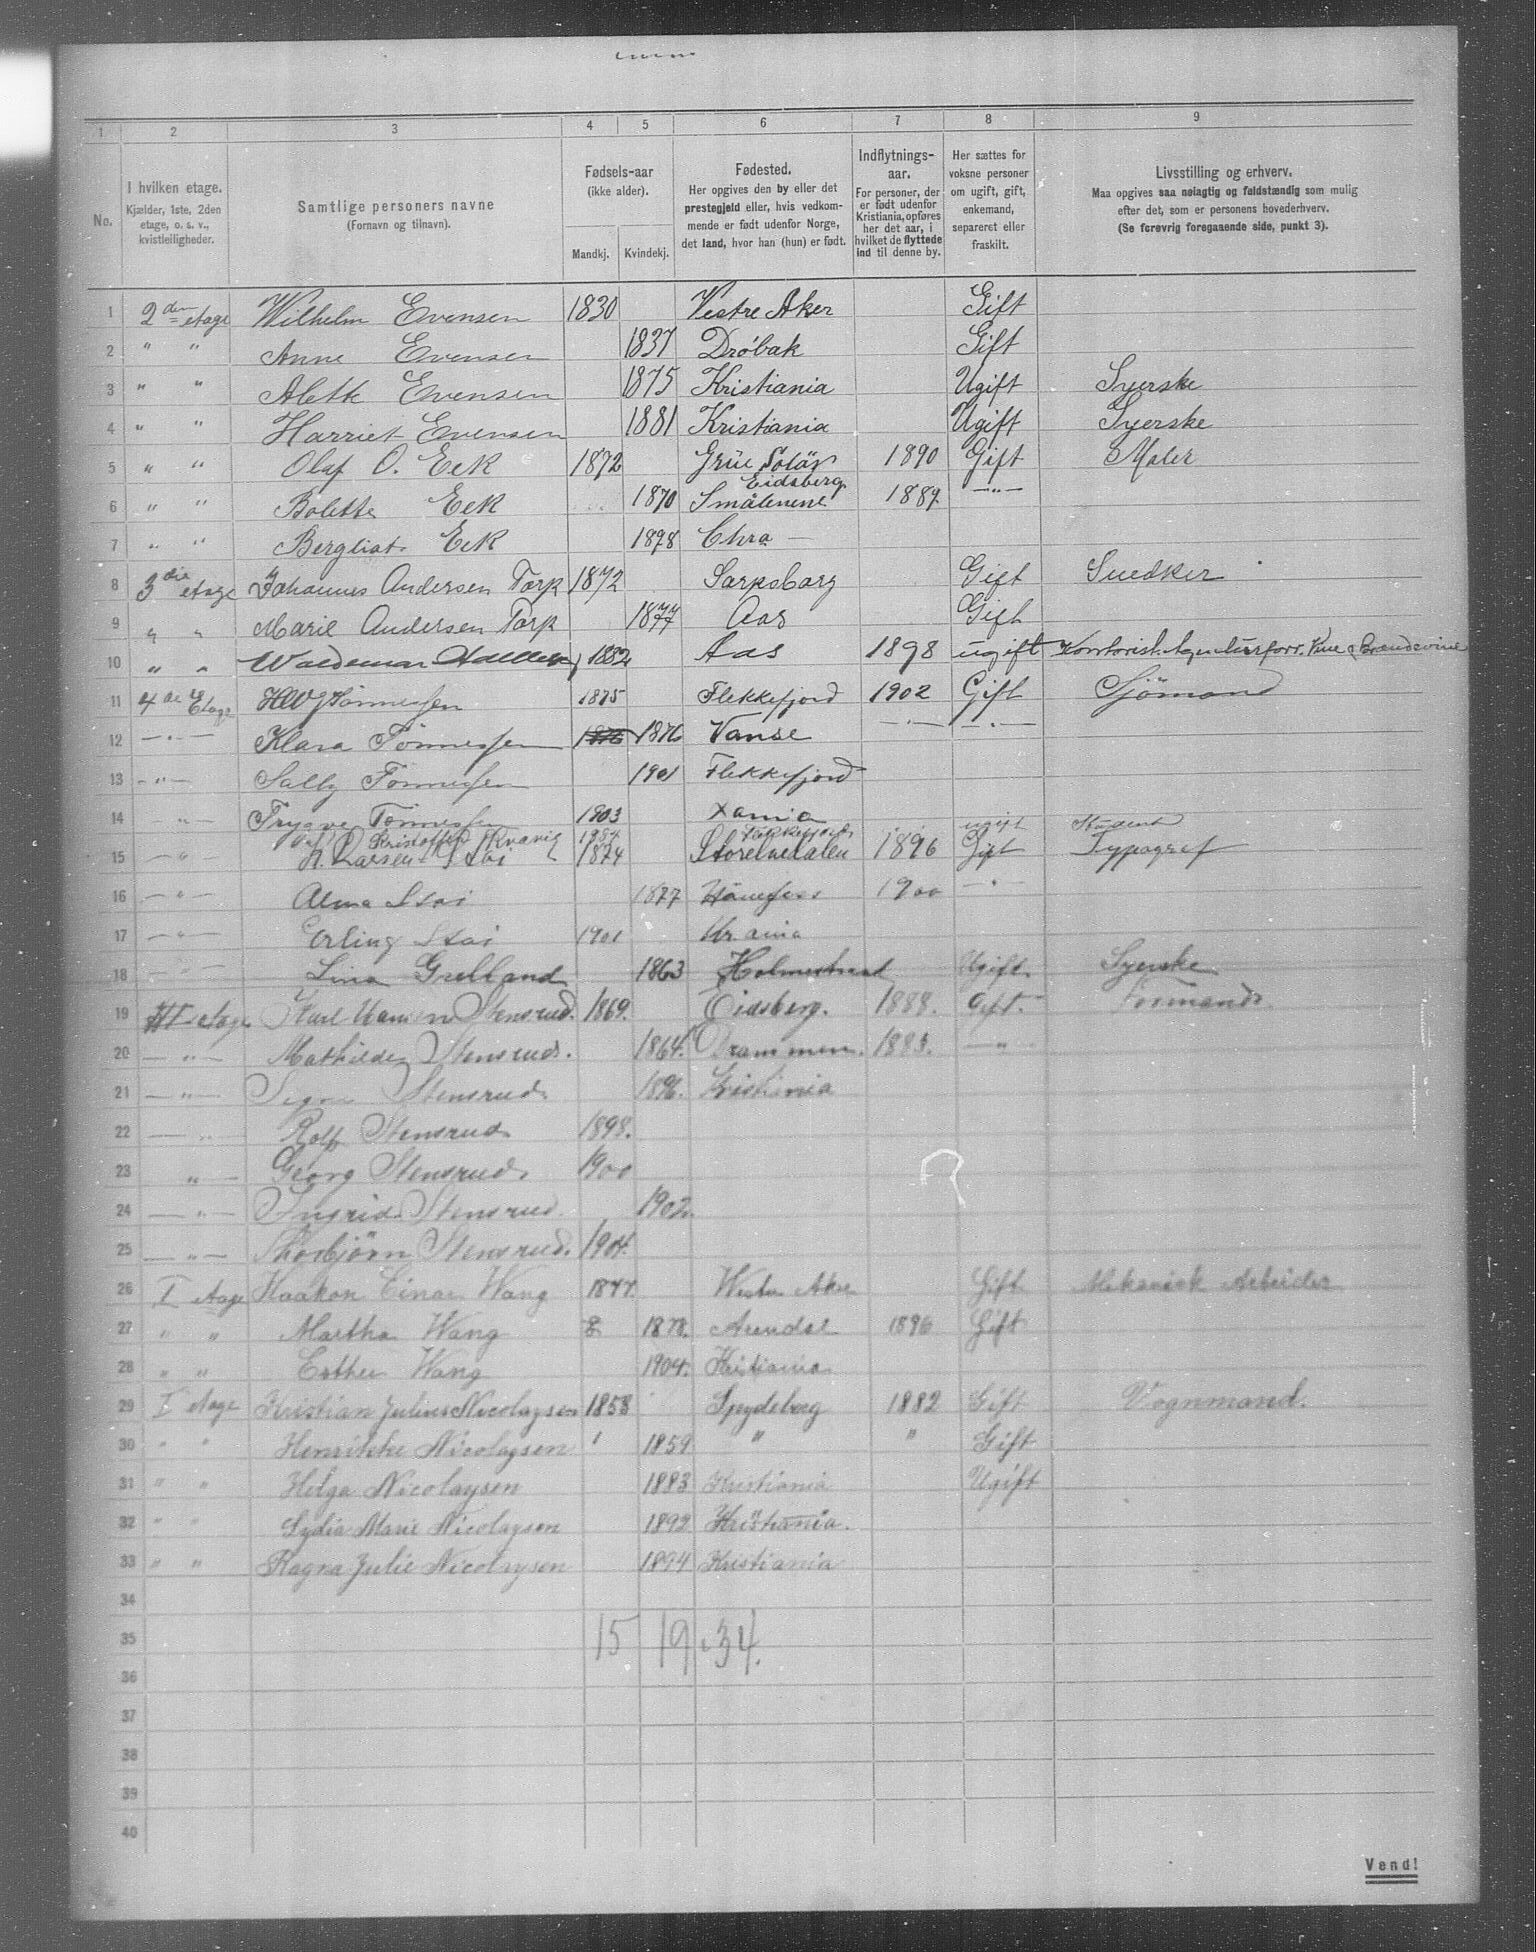 1 2 3 4 5 6 7 8 9
No.
I hvilken etage.
Kjælder, 1ste, 2den
etage, o. s. v.,
kvistleiligheder.
Samtlige personers navne
(Fornavn og tilnavn).
Fødsels-aar
(ikke alder).
Mandkj. Kvindekj.
Fødested.
Her opgives den by eller det
prestegjeld eller, hvis vedkom-
mende er født udenfor Norge,
det land, hvor han (hun) er født.
Indflytnings-
aar.
For personer, der
er født udenfor
Kristiania, opføres
her det aar, i
hvilket de flyttede
ind til denne by.
Her sættes for
voksne personer
om ugift, gift,
enkemand,
separeret eller
fraskilt.
Livsstilling og erhverv.
Maa opgives saa nøiagtig og fuldstændig som mulig
efter det, som er personens hovederhverv.
(Se forøvrig foregaaende side, punkt 3).
1 2den etage Wilhelm Evensen 1830 Vestre Aker Gift
2 " " Anne Evensen 1837 Drøbak Gift
3 " " Alette Evensen 1875 Kristiania Ugift Syerske
4 " " Harriet Evensen 1881 Kristiania Ugift Syerske
5 " " Olaf O. Eek 1872 Grue Solør 1890 Gift Maler
Eidsberg
6 " " Bolette Eek 1870 Smålenene 1889 —"—
7 " " Bergliot Eek 1898 Chra —
8 3die etage Johannes Andersen Torp 1872 Sarpsborg Gift Snedker
9 " " Marie Andersen Torp 1877 Aas Gift
10 " " Waldemar 1882 Aas 1898 ugift Kontorist Agenturforr. Vine & Brændevine
11 4de Etage Tønnessen 1875 Flekkefjord 1902 Gift Sjømand
12 —"— Klara Tønnessen 1876 1876 Vanse —"— —"—
13 —"— Sally Tønnessen 1901 Flekkefjord
14 —"— Trygve Tønnessen 1903 Xania
Kristoffer Kvavik 1884 Flekkefjord ugift Student
15 —"— Larsen Stai 1874 Storelvedalen 1896 Gift Typograf
16 —"— Alma Stai 1877 Hønefoss 1900 —"—
17 —"— Erling Stai 1901 Kr.ania
18 —"— Lina Grelland 1863 Holmestrand Ugift Syerske
19 III etage Karl Hansen Stensrud. 1869. Eidsberg. 1888. Gift Formand
20 —"— Mathilde Stensrud. 1864. Drammen. 1883. —"—
21 —"— Signe Stensrud 1896. Kristiania
22 —"— Rolf Stensrud 1898.
23 "— Georg Stensrud 1900
24 —"— Ingrid Stensrud 1902.
25 —"— Thorbjörn Stensrud. 1904.
26 I etage Haakon Einar Wang 1877. Westre Aker Gift Mekanisk Arbeider
27 " " Martha Wang 1878. Arendal 1896 Gift
28 " " Esther Wang 1904. Kristiania
29 I etage Kristian Julius Nicolaysen 1858 Spydeberg 1882 Gift Vognmand.
30 " " Henrikke Nicolaysen 1859 " " Gift
31 " " Helga Nicolaysen 1883 Kristiania Ugift
32 " " Lydia Marie Nicolaysen 1892 Kristiania.
33 " " Ragna Julie Nicolaysen 1894 Kristiania
34
35 15 19 34.
36
37
38
39
40
Vend!